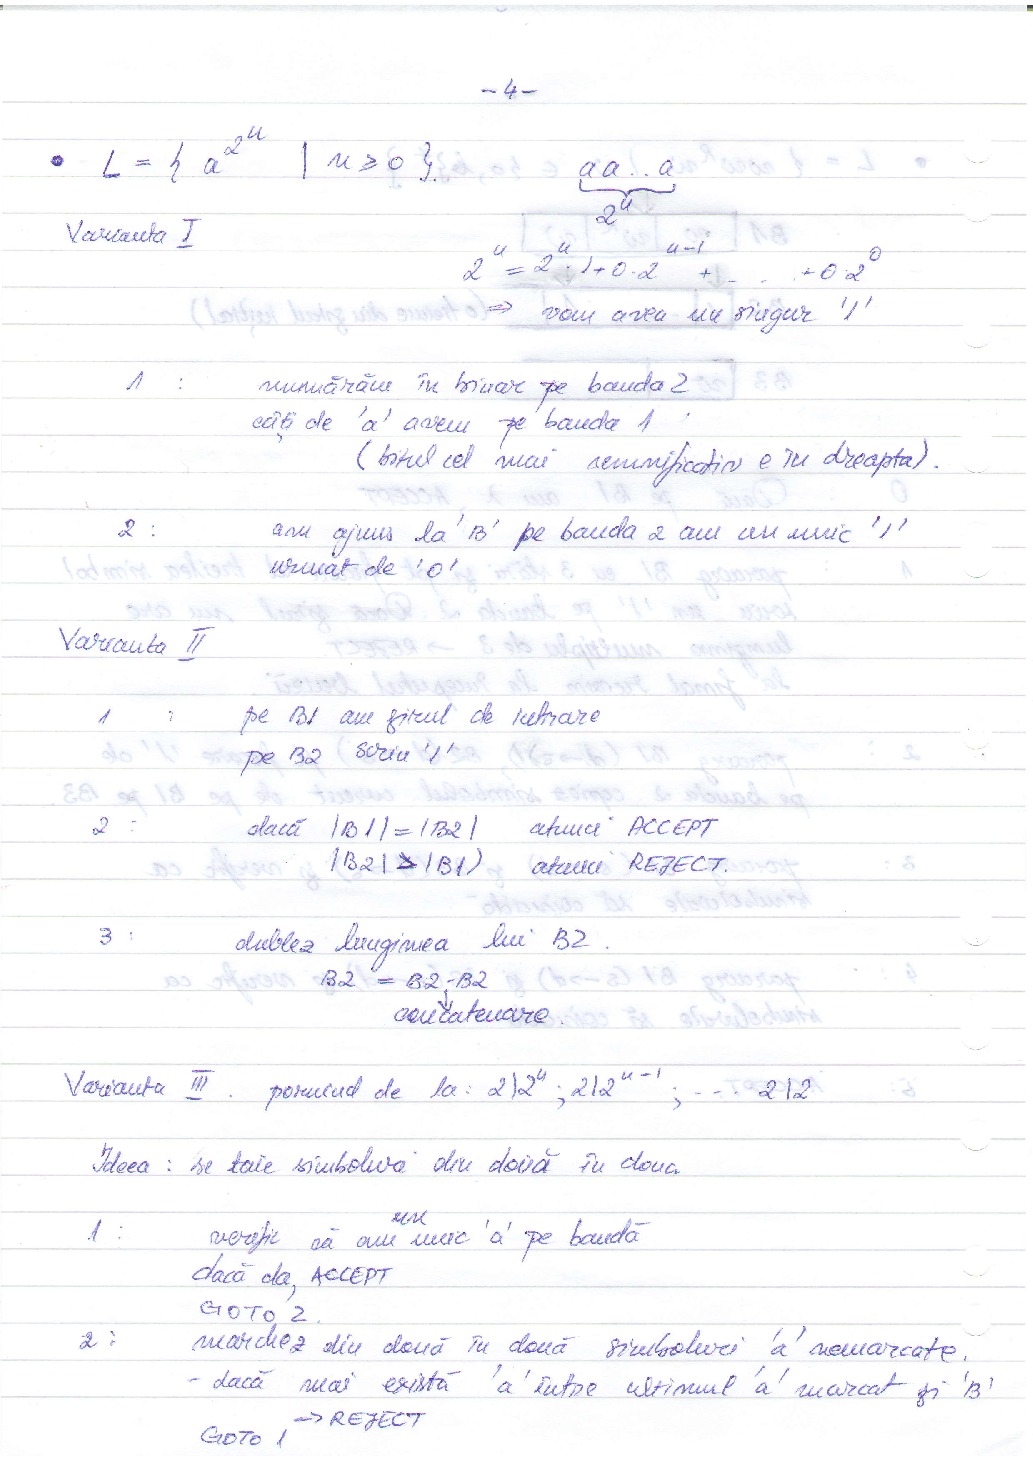 - 4 -
• L = { a^{2^n} | n ≥ 0 }. aa...a
2^n
Varianta I
2^n = 2^n · 1 + 0 · 2^{n-1} + . . . + 0 · 2^0
⇒ vom avea un singur '1'
1 : numărăm în binar pe banda 2
câți de 'a' avem pe banda 1
(bitul cel mai semnificativ e în dreapta).
2 : am ajuns la 'B' pe banda 2 am un unic '1'
urmat de '0'
Varianta II
1 : pe B1 am șirul de intrare
pe B2 scriu '1'
2 : dacă |B1| = |B2| atunci ACCEPT
|B2| > |B1| atunci REJECT.
3 : dublez lungimea lui B2.
B2 = B2 · B2
concatenare.
Varianta III. pornind de la: 2|2^n ; 2|2^{n-1} ; ... 2|2
Ideea : se taie simboluri din două în două
1 : verific că am un unic 'a' pe bandă
dacă da, ACCEPT
GOTO 2.
2 : marchez din două în două simboluri 'a' nemarcate.
- dacă mai există 'a' între ultimul 'a' marcat și 'B'
→ REJECT
GOTO 1